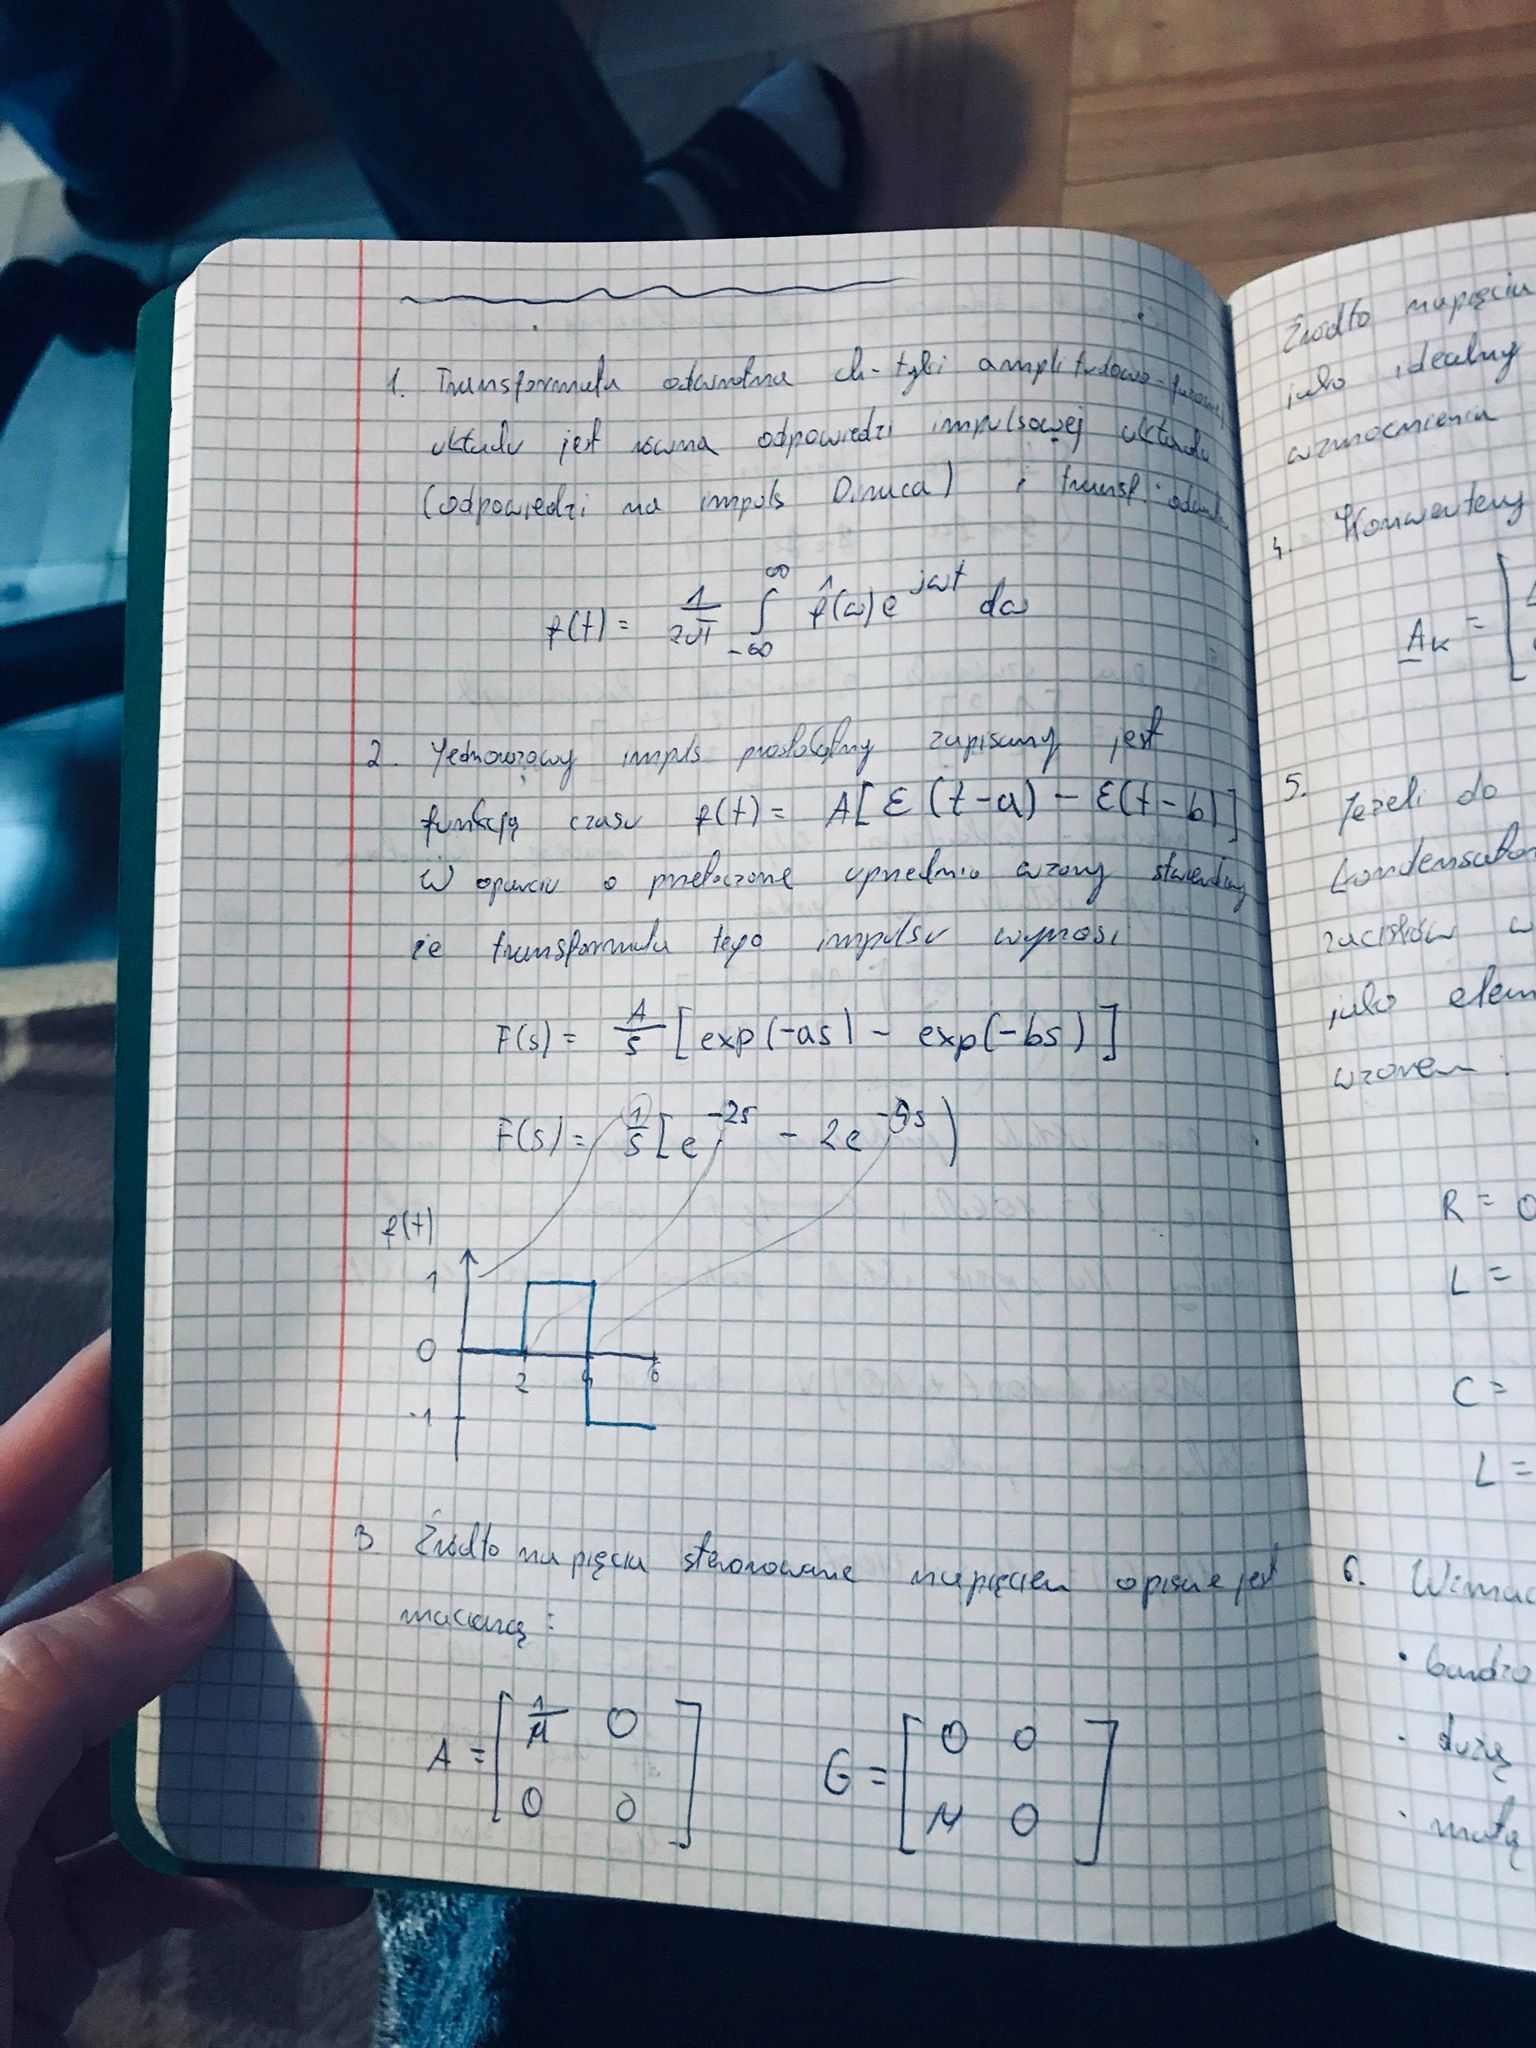 1. Transformata odwrotna ch-tyki amplitudowo-fazowej
układu jest równa odpowiedzi impulsowej układu
(odpowiedzi na impuls Diraca) i transf. odwrotna
f(t) = 1/2π ∫_{-∞}^{∞} f̂(ω) e^{jωt} dω
2. Jednorazowy impuls prostokątny zapisany jest
funkcją czasu f(t) = A[ε(t-a) - ε(t-b)]
W oparciu o przetoczone uprzednio wzory stwierdzamy
że transformata tego impulsu wynosi
F(s) = A/s [exp(-as) - exp(-bs)]
F(s) = 1/s [e^{-2s} - 2e^{-4s})
f(t)
1
0
2 4 6
-1
3 Źródło napięcia sterowane napięciem opisane jest
macierzą:
A = [1/μ 0
0 0]
G = [0 0
μ 0]
Źródło napięcia
jako idealny
wzmocnienia
4. Konwertery
A_K = [
5. Jeżeli do
kondensator
zacisków w
jako elem
wzorem:
R = 0
L =
C =
L =
6. Wzmac
• bardzo
• dużą
• małą